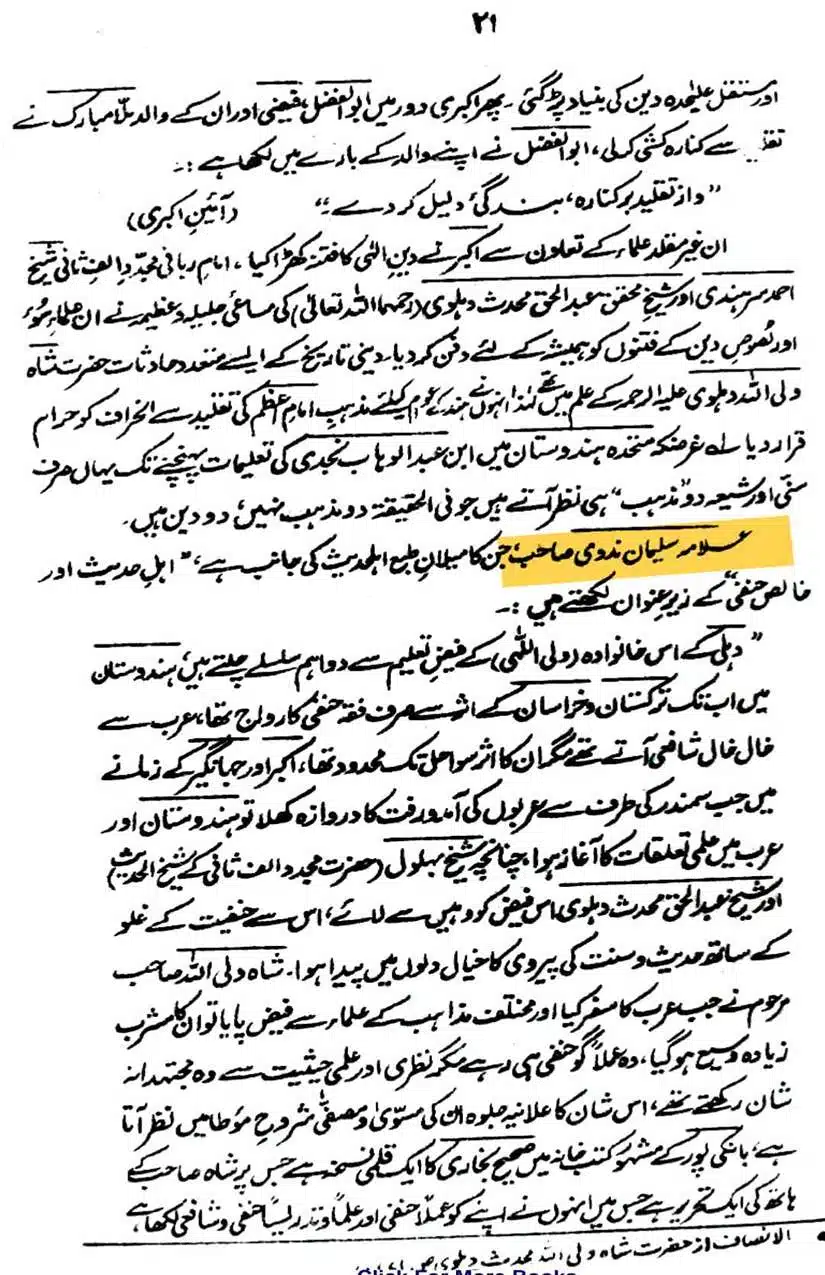 ۲۱
اور مستقل علیحدہ دین کی بنیاد پڑ گئی۔ پھر اکبری دور میں ابوالفضل، فیضی اور ان کے والد ملا مبارک نے
سے کنارہ کشی کر لی، ابوالفضل نے اپنے والد کے بارے میں لکھا ہے:۔
”واز تقلید بر کنارہ، بندگئ دلیل کردے۔“ (آئینِ اکبری)
ان غیر مقلد علماء کے تعاون سے اکبر نے دینِ الٰہی کا فتنہ کھڑا کیا، امامِ ربانی مجدد الفِ ثانی شیخ
احمد سرہندی اور شیخِ محقق عبدالحق محدث دہلوی (رحمہما اللہ تعالیٰ) کی مساعئ جلیلہ و عظیمہ نے ان علماءِ سُوء
اور لُصوصِ دین کے فتنوں کو ہمیشہ کے لئے دفن کر دیا۔ دینی تاریخ کے ایسے متعدد حادثات حضرت شاہ
ولی اللہ دہلوی علیہ الرحمہ کے علم میں تھے لہٰذا انہوں نے ہند کے عوام کیلئے مذہبِ امامِ اعظم کی تقلید سے انحراف کو حرام
قرار دیا۔ لہ غرضکہ متحدہ ہندوستان میں ابن عبدالوہاب نجدی کی تعلیمات پہنچنے تک یہاں صرف
سنی اور شیعہ دو ”مذہب“ ہی نظر آتے ہیں جو فی الحقیقۃ دو مذہب نہیں، دو دین ہیں۔
علامہ سلیمان ندوی صاحب جن کا میلانِ طبع اہلحدیث کی جانب ہے، ”اہلِ حدیث اور
خالص حنفی“ کے زیرِ عنوان لکھتے ہیں:۔
”دہلی کے اس خانوادہ (ولی اللّٰہی) کے فیضِ تعلیم سے دو اہم سلسلے چلتے ہیں، ہندوستان
میں اب تک ترکستان و خراسان کے اثر سے صرف فقہ حنفی کا رواج تھا، عرب سے
خال خال شافعی آتے تھے مگر ان کا اثر سواحل تک محدود تھا، اکبر اور جہانگیر کے زمانے
میں جب سمندر کی طرف سے عربوں کی آمدورفت کا دروازہ کھلا تو ہندوستان اور
عرب میں علمی تعلقات کا آغاز ہوا، چنانچہ شیخ بہلول (حضرت مجدد الف ثانی کے شیخ الحدیث)
اور شیخ عبدالحق محدث دہلوی، اس فیض کو وہیں سے لائے، اس سے حنفیت کے غلو
کے ساتھ حدیث و سنت کی پیروی کا خیال دلوں میں پیدا ہوا۔ شاہ ولی اللہ صاحب
مرحوم نے جب عرب کا سفر کیا اور مختلف مذاہب کے علماء سے فیض پایا تو ان کا مشرب
زیادہ وسیع ہو گیا، وہ عملاً گو حنفی ہی رہے مگر نظری اور علمی حیثیت سے وہ مجتہدانہ
شان رکھتے تھے، اس شان کا علانیہ جلوہ ان کی مسوّیٰ و مصفّٰی شروحِ مؤطا میں نظر آتا
ہے، بانکی پور کے مشہور کتب خانہ میں صحیح بخاری کا ایک قلمی نسخہ ہے جس پر شاہ صاحب کے
ہاتھ کی ایک تحریر ہے جس میں انہوں نے اپنے کو عملاً حنفی اور علماً و تدریساً حنفی و شافعی لکھا ہے،
الانصاف از حضرت شاہ ولی اللہ محدث دہلوی
Click For More Books